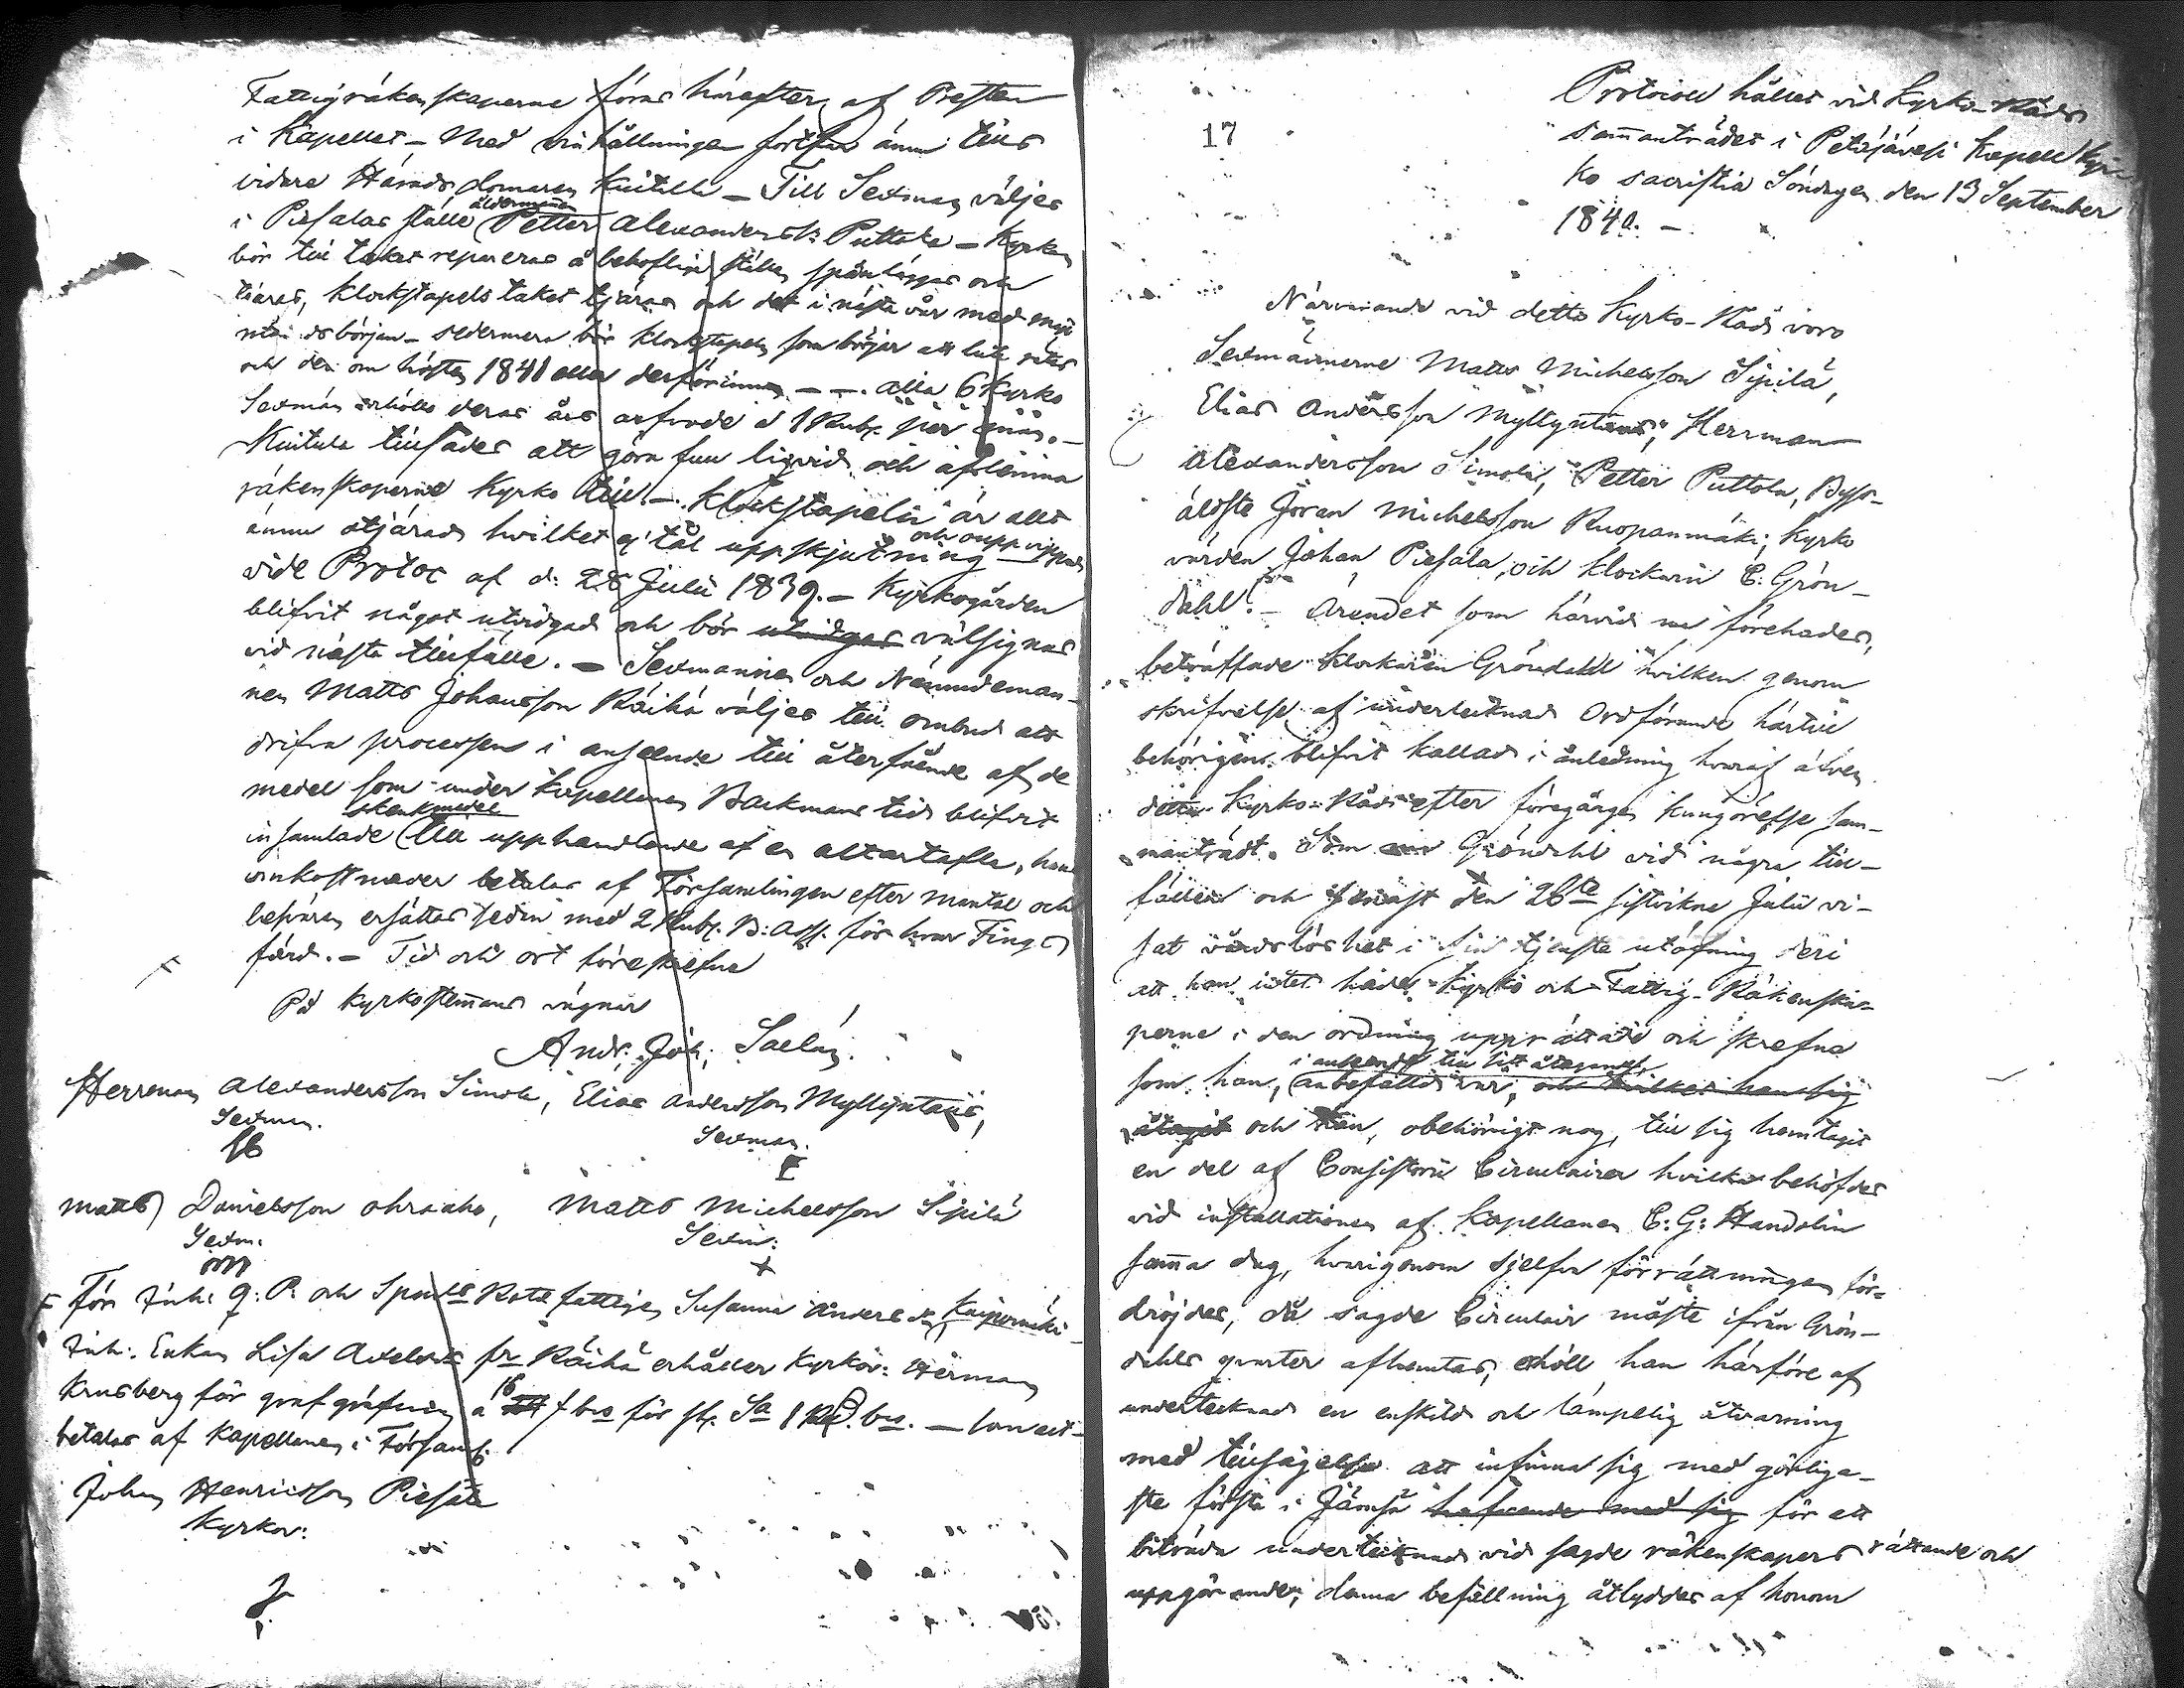 Fattigräkenskaperne föras härefter af Presten
i Kapellet – Med vinhållningen fortfar ännu tills
vidare Häradsdomaren Kuitula – Till Sexman väljes
i Piesalas ställe åldermannen Petter Alexanderss: Puttola – Kyrkan
bör till taket repareras å behöflige ställen spånläggas och
tjäras, klockstapels taket tjäras och det i nästa vår med
början – sedermera bör klockstapeln som börjar att luta rätas
och det om hösten 1841 eller derförinnan – –. Alla 6 Kyrko
Sexmän erhölls deras års arfvode à 1 Rub. per
Kuitula tillsades att göra full liqvid och aflemna
räkenskaperne Kyrko till. –. Klockstapeln är allt
ännu otjärad hvilket ej tål uppskjutning och
vide Protoc af d: 28 Julii 1839. – Kyrkogården
blifvit något utvidgad och bör utvidgas välsignas
vid nästa tillfälle. – Sexmannen och Nämndeman-
nen Matts Johansson Räihä väljes till ombud att
drifva processen i anseende till återfående af de
medel som under Kapellanen Backmans tid blifvit
insamlade skänkmedel till upphandlande af en altartafla, hans
omkostnader betalas af Församlingen efter mantal och
besväret ersättes sedan med 2 Rub. B: Ass. för hvar Tings
färd. – Tid och ort föreskrefne
På Kyrkostemmans vägnar
Andr: Joh: Saelán.
Herrman Alexandersson Simola, Elias Andersson Myllyntaus,
Sexman. Sexman.
Matts Danielsson Ahoaho, Matts Michelsson Sipilä
Sexm: Sexm:
För Inh: q: P. och Rote fattigen Susanna Andersd:
Inh: Enkan Lisa Axelsd: fr Räihä erhåller Kyrkov: Herman
Krusberg för grafgräfning à 16 för st. Sa 1 –
betalas af Kapellanen i Församl:
Johan Henricsson Piesala
Kyrkov:
17
Protocoll hållet vid Kyrko-Råds
sammanträdet i Petäjävesi Kapell Kyr-
ko sacristia Söndagen den 13 September
1840. –
Närvarande vid detta Kyrko-Råd voro
Sexmännerne Matts Michelsson Sipilä,
Elias Andersson Myllyntaus, Herrman
Alexandersson Simola, Petter Puttola, Bys-
äldste Jöran Michelsson Ruopanmäki, Kyrko
värden Johan Piesala, och klockarn C: Grön-
dahl. – Ärendet som härvid nu förehades,
beträffade Klockaren Gröndahl hvilken genom
skrifvelse af undertecknad Ordförande härtill
behörigen blifvit kallad i anledning hvaraf äfven
detta Kyrko-Råd efter föregången kungörelse sam-
manträdt. Som Gröndahl vid några till-
fällen och senast den 26te sistvikne Julii vi-
sat vårdslöshet i sin tjenste utöfning deri
att han intet hade Kyrko och Fattig-Räkenska-
perne i den ordning upprättade och skrefne
som han, i anseende till sitt åtagande, anbefalld var, och hvilket han sig
åtagit och han, obehörigt nog, till sig hemtagit
en del af Consistorii Circulairer hvilka behöfdes
vid installationen af Kapellanen C: G: Handolin
samma dag, hvarigenom sjelfva förrättningen för-
dröjdes, då sagde Circulair måste ifrån Grön-
dahls qvarter afhemtas, erhöll han härföre af
undertecknad en enskild och lämpelig åtvarning
med tillsägelse att infinna sig med görliga-
ste första i Jämsä hafvande med sig för att
biträda undertecknad vid sagde räkenskapers rättande och
uppgörande; denna befallning åtlyddes af honom